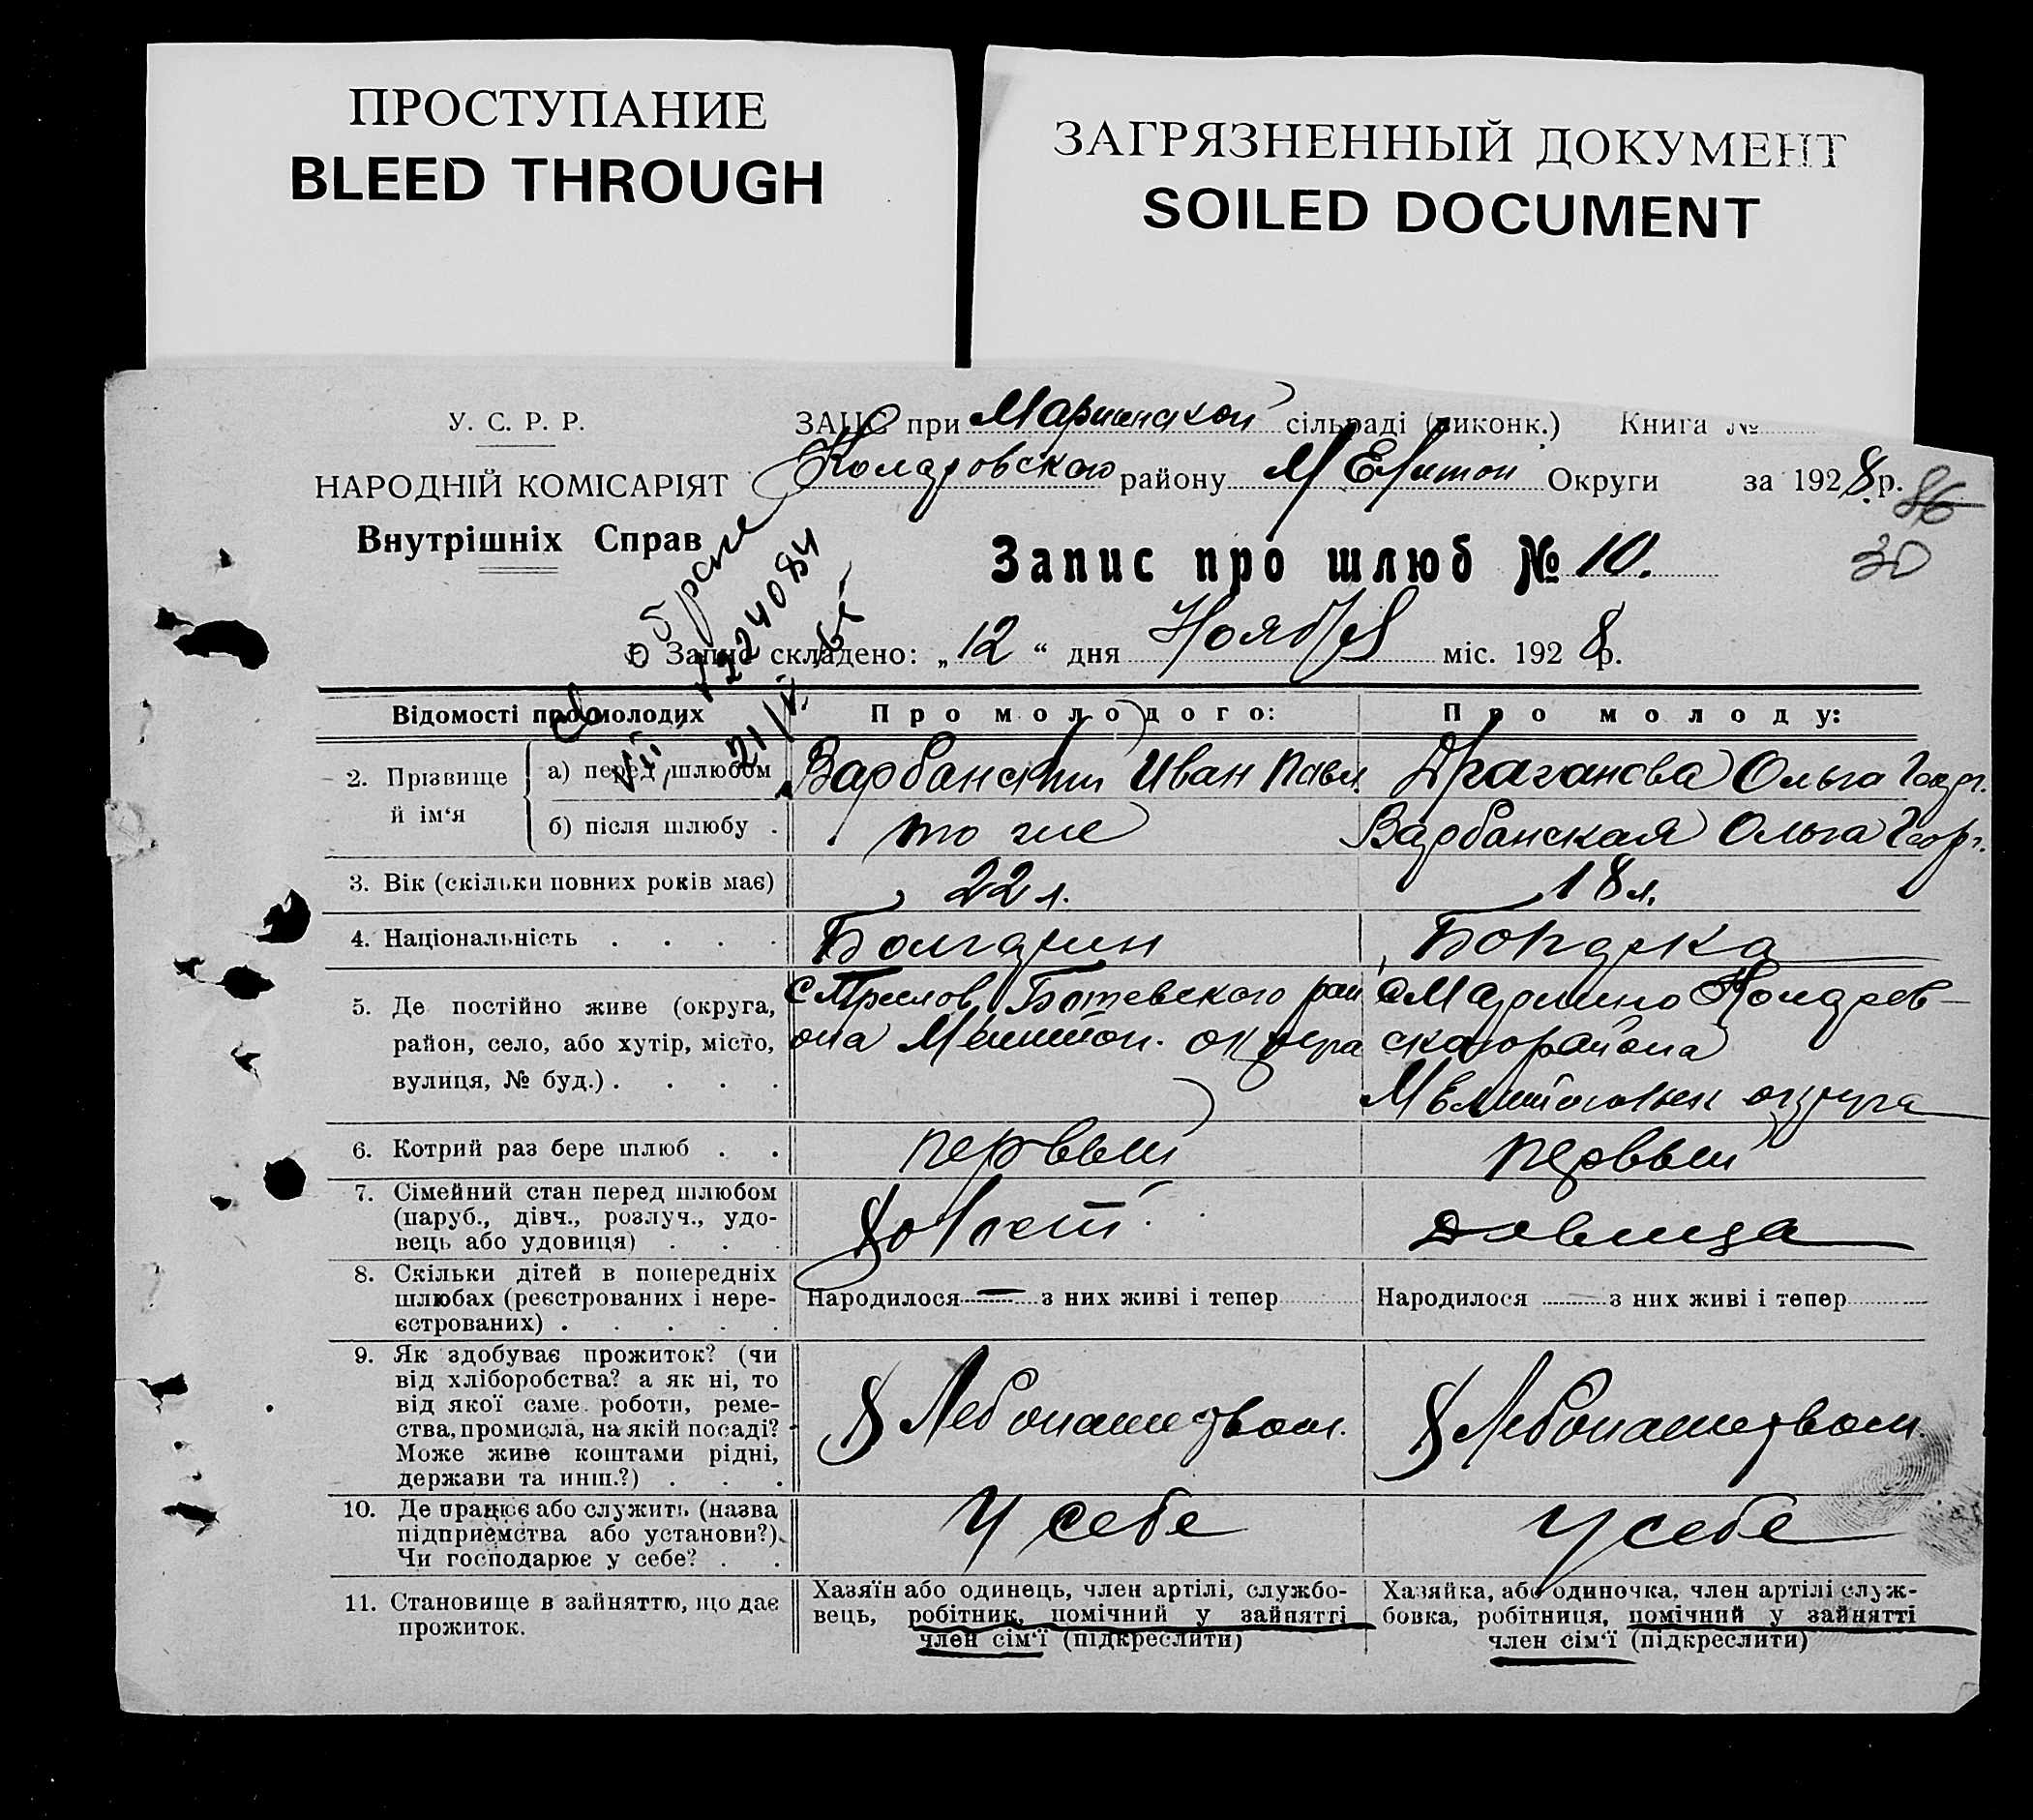 ПРОСТУПАНИЕ
BLEED THROUGH
ЗАГРЯЗНЕННЫЙ ДОКУМЕНТ
SOILED DOCUMENT
У. С. Р. Р.
НАРОДНІЙ КОМІСАРІЯТ
Внутрішніх Справ
ЗАЦС при Мариинской сільраді (виконк.) Книга №
Коларовского району Мелитоп Округи за 1928 р.
86
30
Запис про шлюб № 10.
Запис складено: „12“ дня Ноября міс. 1928 р.
Відомості про молодих
Про молодого:
Про молоду:
2. Прізвище й ім‘я
а) перед шлюбом Варбанский Иван Павл. Драганова Ольга Геор.
б) після шлюбу . то же Варбанская Ольга Геор.
3. Вік (скільки повних років має) 22 л. 18 л.
4. Національність . . . . Болгарин Болгарка
5. Де постійно живе (округа,
район, село, або хутір, місто,
вулиця, № буд.) . . . .
Ботевского рай
она Мелитоп. округа
Коларов-
ского района
округа
6. Котрий раз бере шлюб . . первый первый
7. Сімейний стан перед шлюбом
(паруб., дівч., розлуч., удо-
вець або удовиця) . . .
холост девица
8. Скільки дітей в попередніх
шлюбах (реєстрованих і нере-
єстрованих) . . . . .
Народилося — з них живі і тепер
Народилося з них живі і тепер
9. Як здобуває прожиток? (чи
від хліборобства? а як ні, то
від якої саме роботи, реме-
ства, промисла, на якій посаді?
Може живе коштами рідні,
держави та инш.?) . . .
Хлебопашеством. Хлебопашеством.
10. Де працює або служить (назва
підприємства або установи?).
Чи господарює у себе? . .
У себе У себе
11. Становище в зайняттю, що дає
прожиток.
Хазяїн або одинець, член артілі, службо-
вець, робітник, помічний у зайнятті
член сім‘ї (підкреслити)
Хазяйка, або одиночка, член артілі служ-
бовка, робітниця, помічний у зайнятті
член сім‘ї (підкреслити)